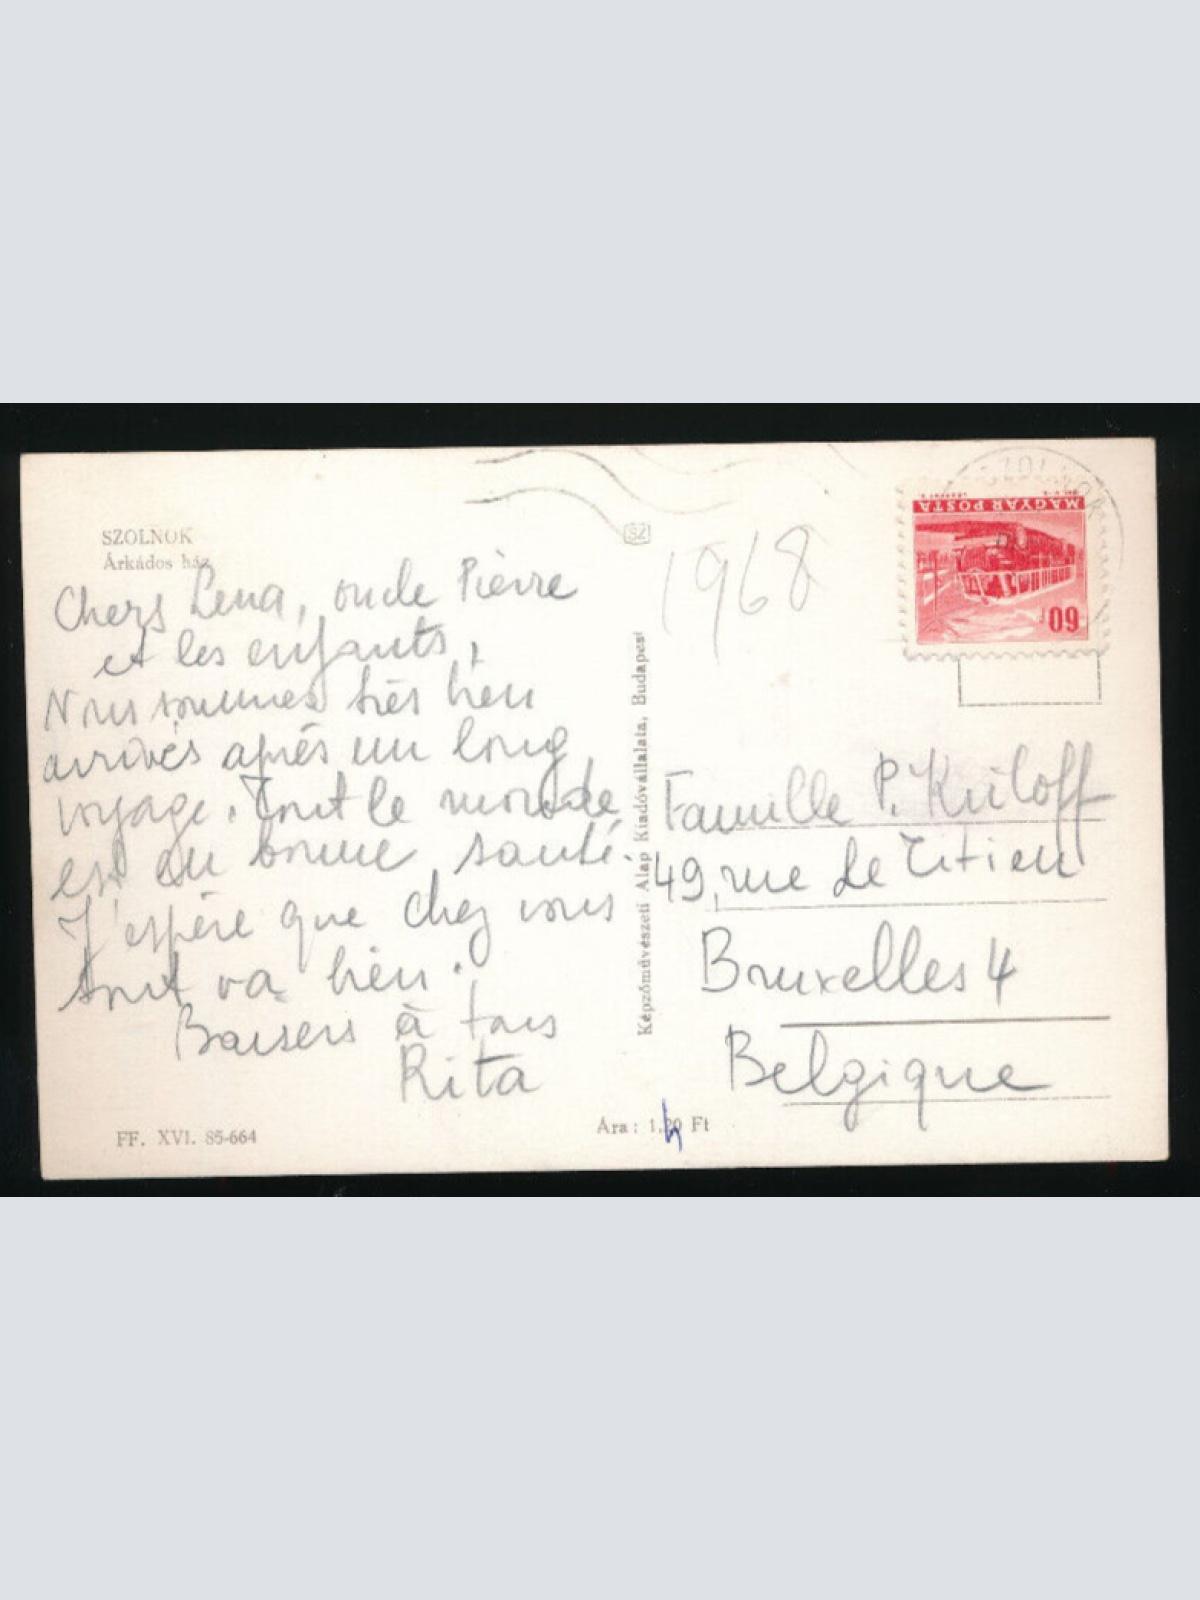 SZOLNOK
Árkádos ház
Chers Lena, oncle Pierre
et les enfants,
Nous sommes très bien
arrivés après un long
voyage. Tout le monde
est en bonne santé.
J'espère que chez vous
tout va bien.
Baisers à tous
Rita
FF. XVI. 85-664
Ára: 1,20 Ft
Képzőművészeti Alap Kiadóvállalata, Budapest
SZ
1968
SZOLNOK
MAGYAR POSTA
60f
Famille P. Kriloff
49, rue Le Titien
Bruxelles 4
Belgique